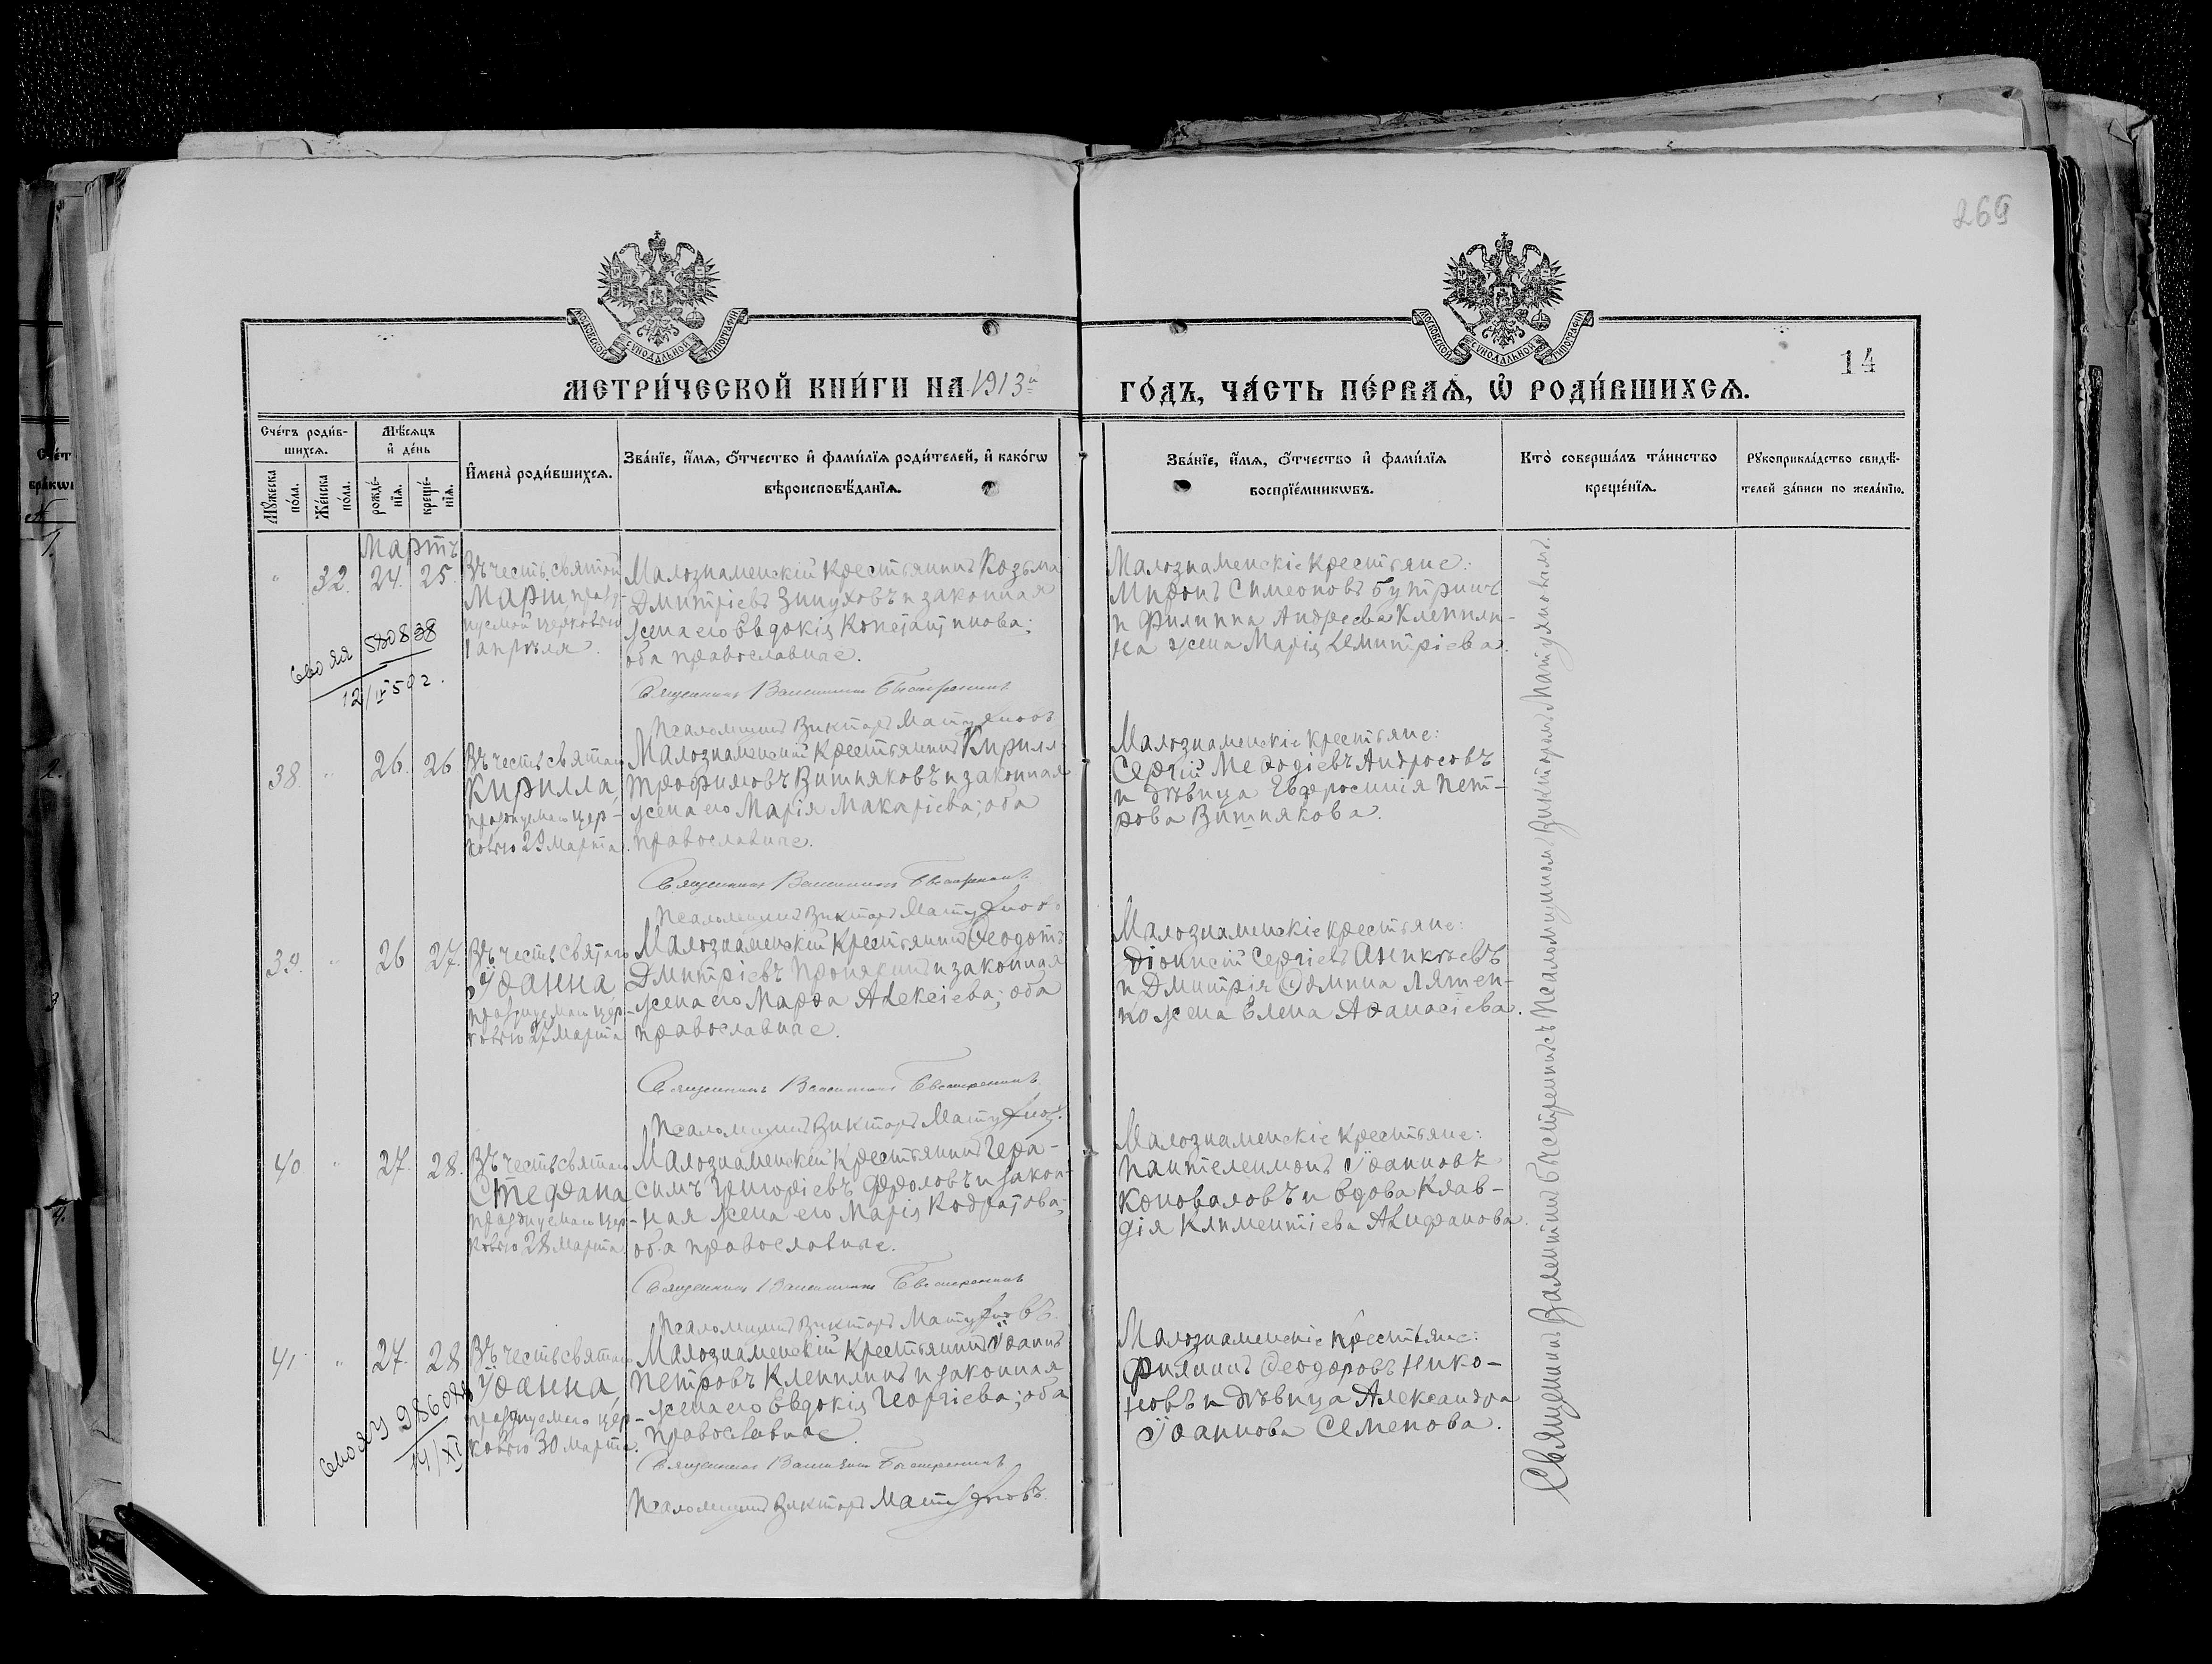 269
14
МОСКОВСКОЙ СУНОДАЛЬНОЙ ТИПОГРАФІИ
МОСКОВСКОЙ СУНОДАЛЬНОЙ ТИПОГРАФІИ
МЕТРИ́ЧЕСКОЙ КНИ́ГИ НА 1913й
ГО́ДЪ, ЧА́СТЬ ПЕ́РВАѦ, Ѡ҆ РОДИ́ВШИХСѦ.
Сче́тъ роди́в-
шихсѧ.
Мꙋ́жеска по́ла.
Же́нска по́ла.
Мѣ́сѧцъ
и҆ де́нь
рожде́-
нїѧ.
креще́-
нїѧ.
И҆мена̀ роди́вшихсѧ.
Зва́нїе, и҆́мѧ, ѻ҆́тчество и҆ фами́лїѧ роди́телей, и҆ како́гѡ
вѣроисповѣ́данїѧ.
Зва́нїе, и҆́мѧ, ѻ҆́тчество и҆ фами́лїѧ
воспрїе́мникѡвъ.
Кто̀ соверша́лъ та́инство
креще́нїѧ.
Рꙋкоприкла́дство свидѣ́-
телей за́писи по жела́нїю.
Мартъ
" 32. 24. 25.
Въ честь святой
Маріи, празд-
нуемой церковью
1 апрѣля.
Малознаменскій крестьянинъ Козьма
Дмитріевъ Зинуховъ и законная
жена его Евдокія Константинова;
оба православные.
Священникъ Валентинъ Быстреninъ
Псаломщикъ Викторъ Матуяновъ
Малознаменскіе крестьяне:
Миронъ Симеоновъ Бутринъ
и Филиппа Андреева Клепили-
на жена Марія Димитріева.
580838
38. " 26. 26
Въ честь святаго
Кирилла,
празднуемаго цер-
ковью 29 Марта.
Малознаменскій крестьянинъ Кириллъ
Трофимовъ Вишняковъ и законная
жена его Марія Макаріева; оба
православные.
Священникъ Валентинъ Быстренинъ
Псаломщикъ Викторъ Матуяновъ
Малознаменскіе крестьяне:
Сергій Меѳодіевъ Андросовъ
и дѣвица Евфросинія Пет-
рова Вишнякова.
39. " 26 27.
Въ честь святаго
Іоанна,
празднуемаго цер-
ковью 27 Марта
Малознаменскій крестьянинъ Ѳеодотъ
Дмитріевъ Пронякинъ и законная
жена его Марѳа Алексіева; оба
православные.
Священникъ Валентинъ Быстренинъ
Псаломщикъ Викторъ Матуяновъ
Малознаменскіе крестьяне:
Діонисій Сергіевъ Аникѣевъ
и Дмитрія Ѳомина Лятен-
ко жена Елена Аѳанасіева.
40 " 27. 28.
Въ честь святаго
Стефана
празднуемаго цер-
ковью 28 Марта.
Малознаменскій крестьянинъ Гера-
симъ Григоріевъ Фроловъ и закон-
ная жена его Марія Кодратова;
оба православные.
Священникъ Валентинъ Быстренинъ
Псаломщикъ Викторъ Матуяновъ.
Малознаменскіе крестьяне:
Пантелеимонъ Іоанновъ
Коноваловъ и вдова Клав-
дія Климентіева Алифанова.
41 " 27. 28
Въ честь святаго
Іоанна,
празднуемаго цер-
ковью 30 Марта.
Малознаменскій крестьянинъ Іоаннъ
Петровъ Клепилинъ и законная
жена его Евдокія Георгіева; оба
православные.
Священникъ Валентинъ Быстренинъ
Псаломщикъ Викторъ Матуяновъ
Малознаменскіе крестьяне:
Филиппъ Ѳеодоровъ Нико-
новъ и дѣвица Александра
Іоаннова Семенова.
Священникъ Валентинъ Быстренинъ съ Псаломщикомъ Викторомъ Матуяновымъ.